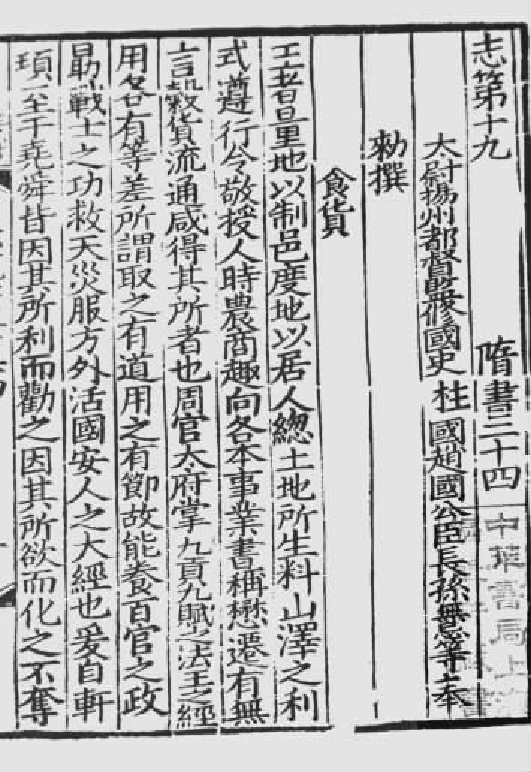 志第十九 隋書二十四
太尉揚州都督監修國史 柱國趙國公臣長孫無忌等奉
勑撰
食貨
王者量地以制邑度地以居人總土地所生料山澤之利
式遵行令敬授人時農商趣向各本事業書稱懋遷有無
言穀貨流通咸得其所者也周官太府掌九貢九賦之法王之經
用各有等差所謂取之有道用之有節故能養百官之政
勗戰士之功救天災服方外活國安人之大經也爰自軒
頊至于堯舜皆因其所利而勸之因其所欲而化之不奪
中華書局上